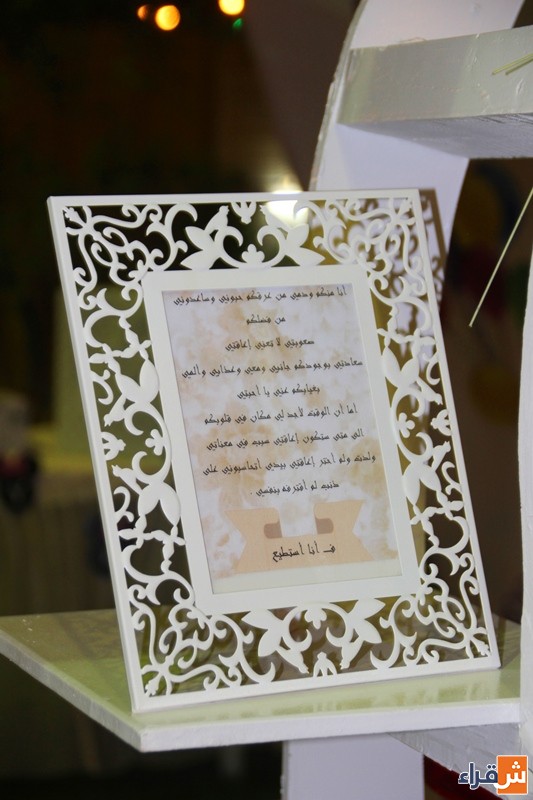 أنا منكم ودمي من عرقكم حبوني وساعدوني
من فضلكم
صعوبتي لا تعني إعاقتي
سعادتي بوجودكم جانبي ومعي وعذابي وألمي
بغيابكم عني يا أحبتي
أما آن الوقت لأجد لي مكان في قلوبكم
الى متى ستكون إعاقتي سبب في معاناتي
ولدت ولم أختر إعاقتي بيدي أتحاسبوني على
ذنب لم أقترفه بنفسي .
ف أنا أستطيع
شقراء